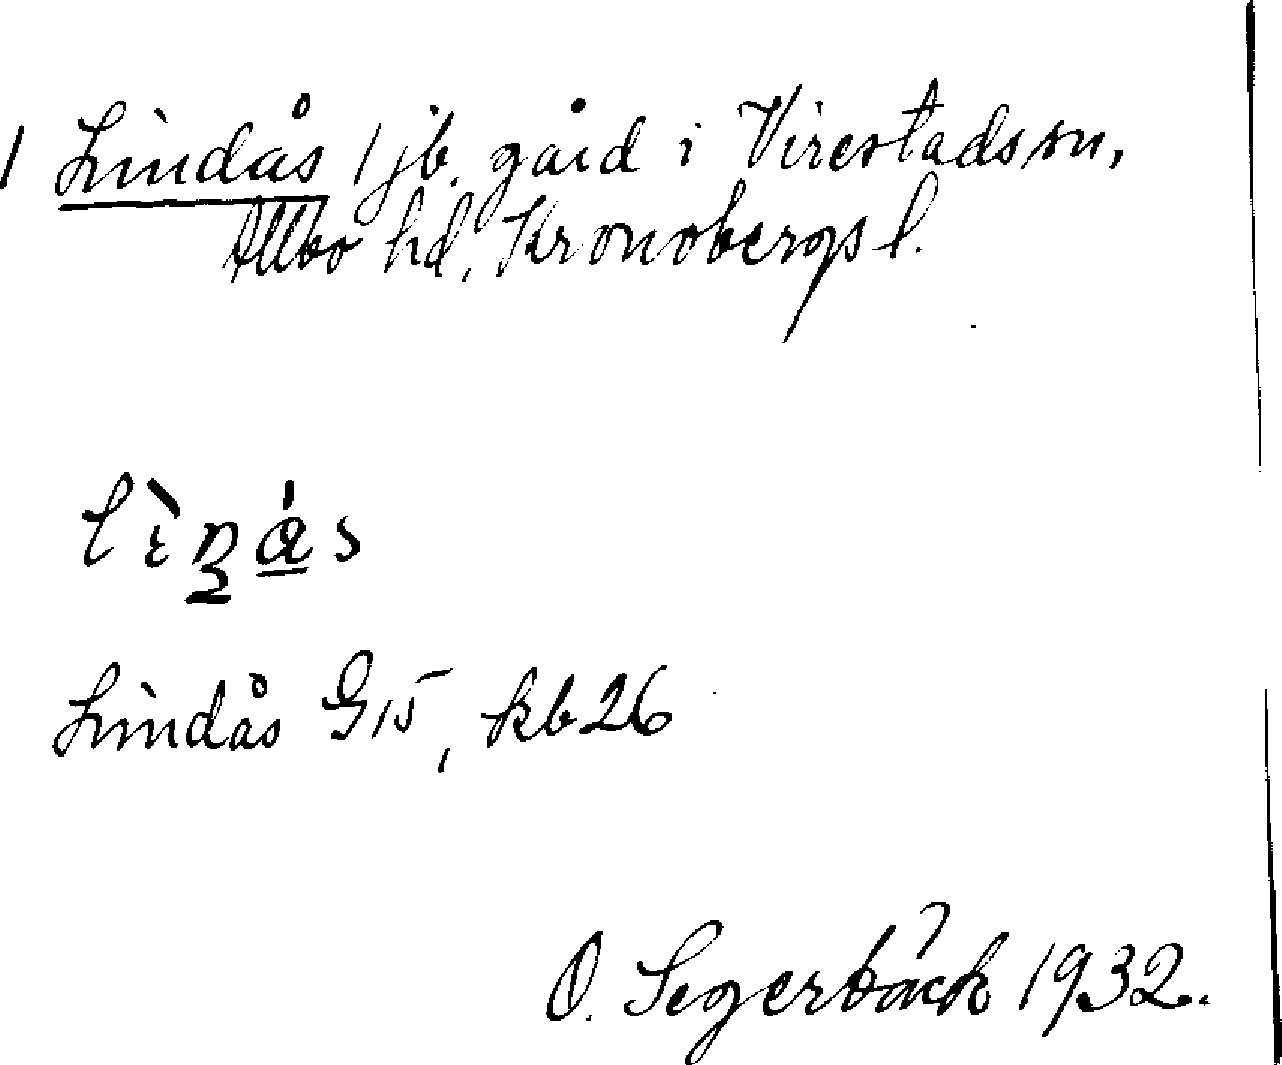 1 Lindås 1 jb. gård i Virestads sn,
Allbo hd, Kronobergs l.
Lindås G15, kb 26
O. Segerbäck 1932.